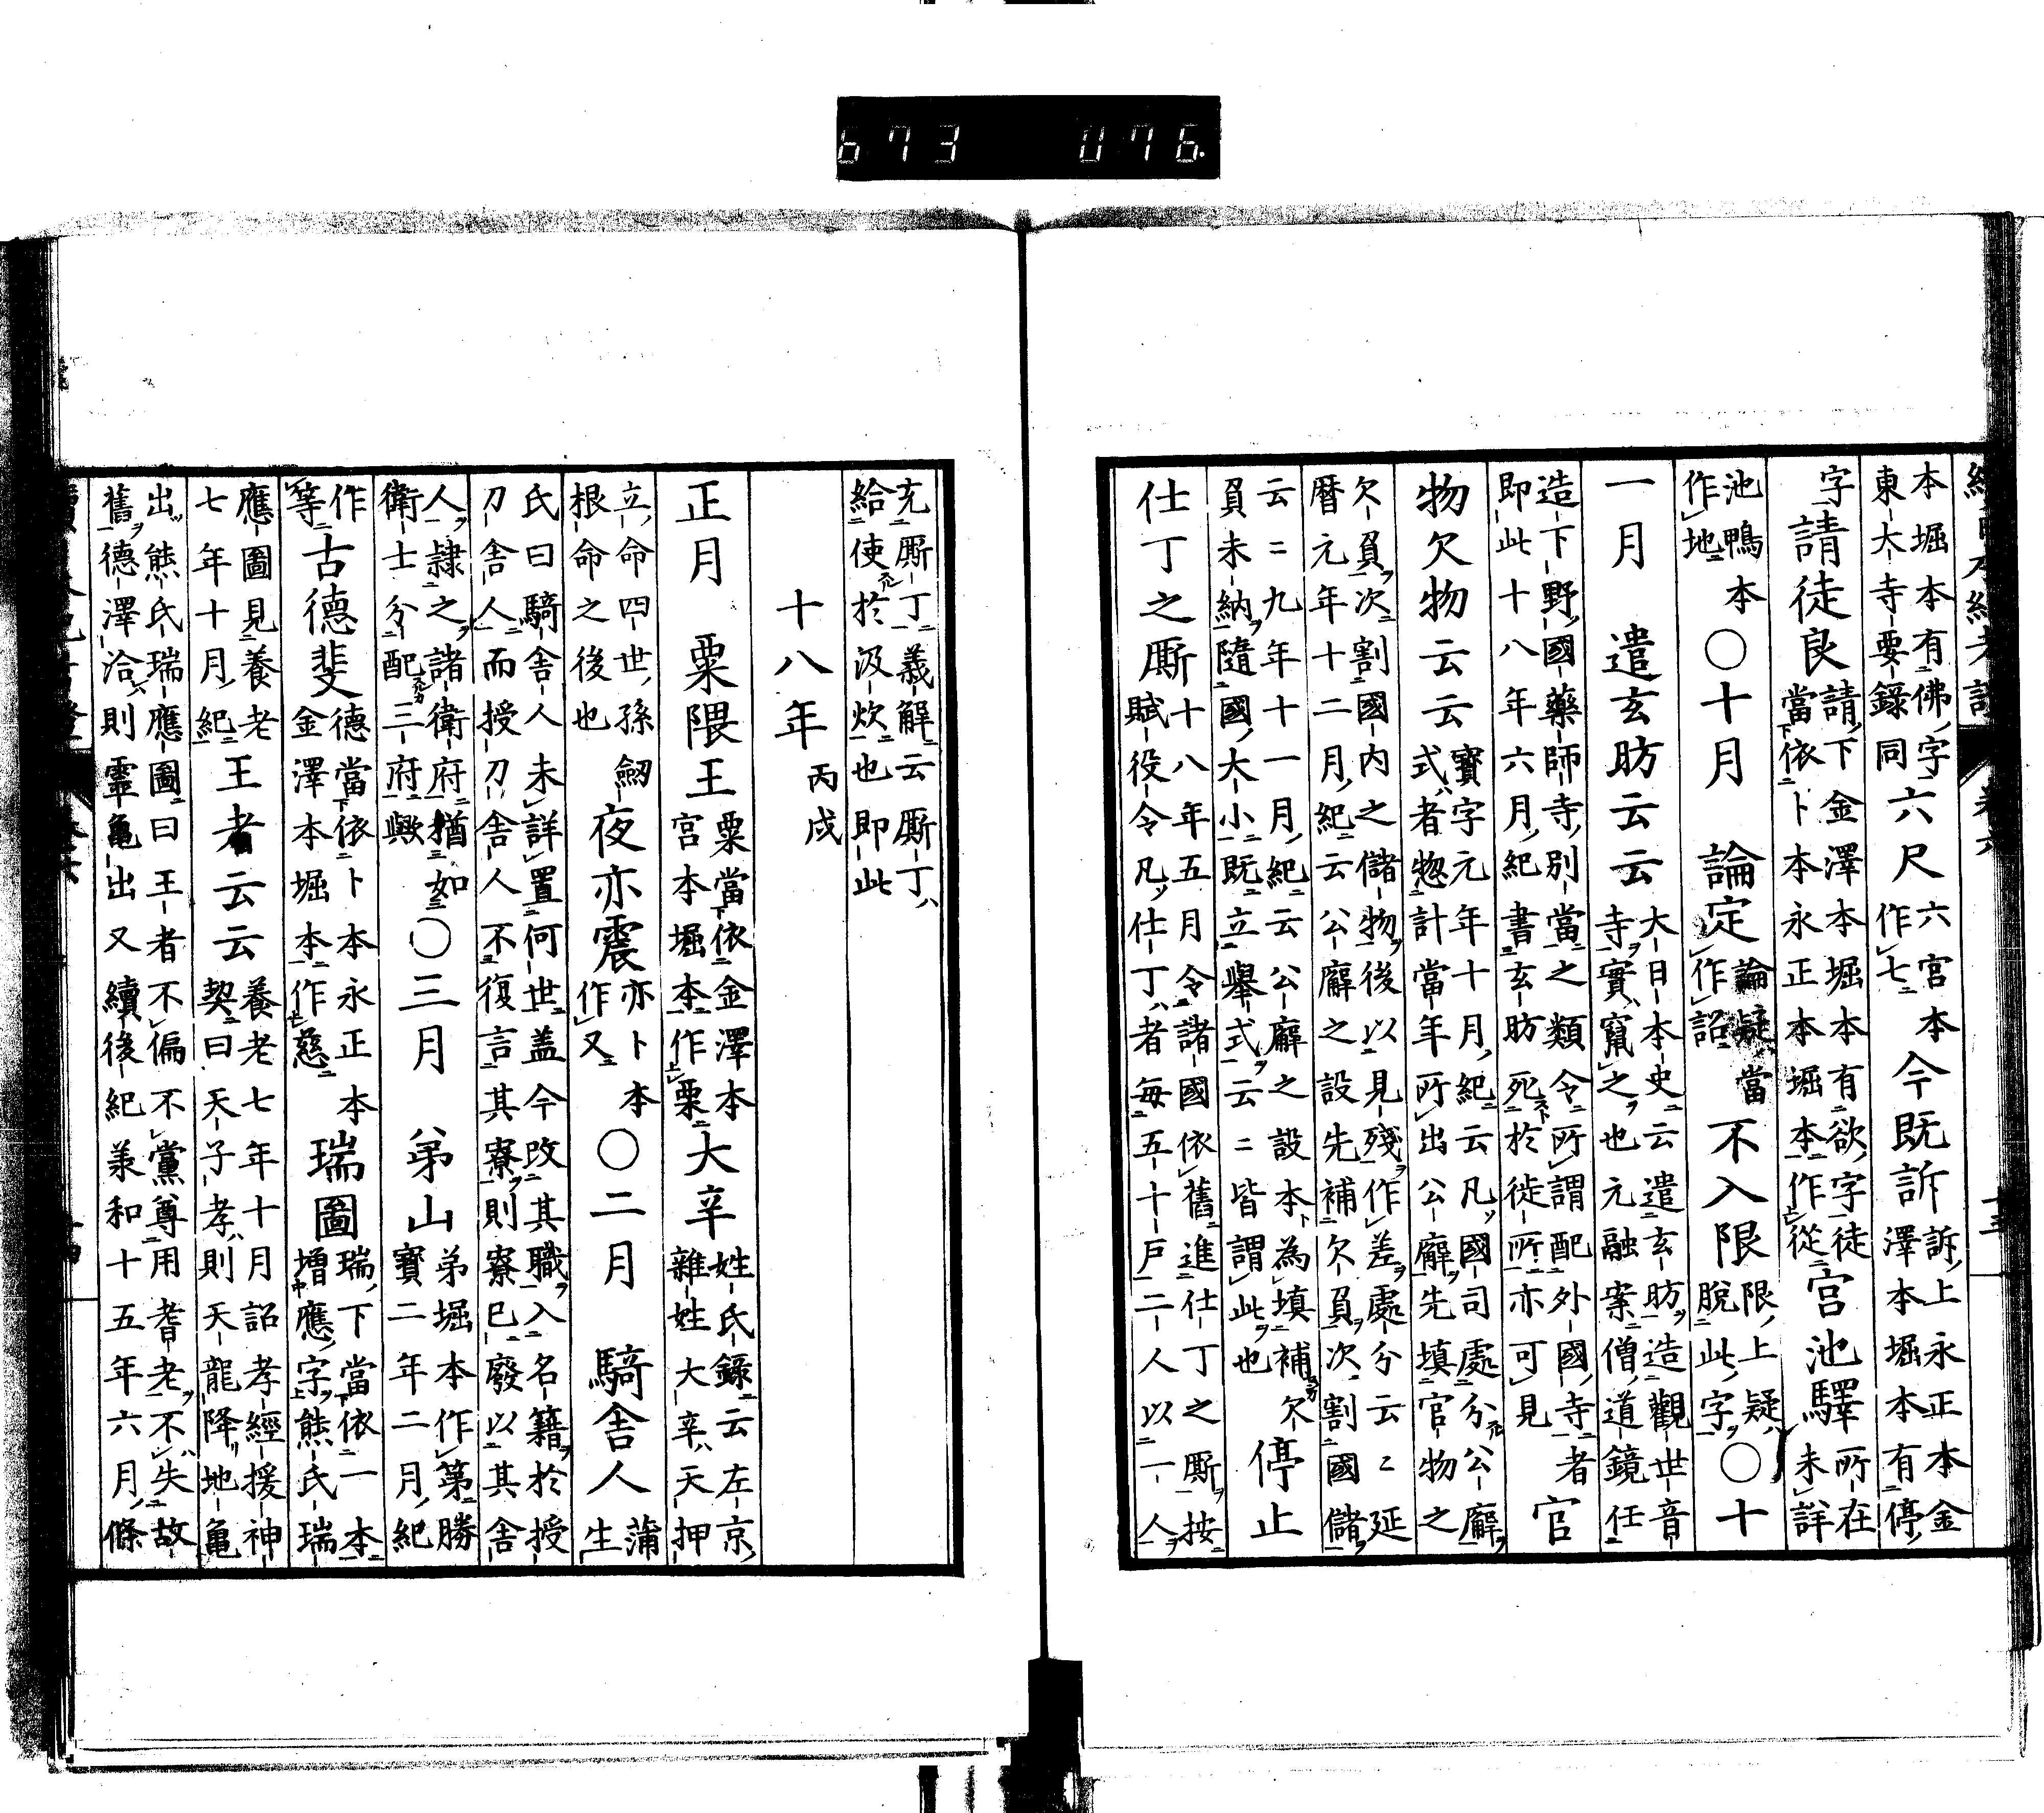 673 076.
本堀本有佛字
東大寺要錄同
六尺
六宮本
作七
今既訴
訴上永正本金
澤本堀本有停
字
請徒良
請下金澤本堀本有欲字徒
當依卜本永正本堀本作從
宮池驛
所在
未詳
池鴨本
作地
〇十月 論定
論疑當
作詔
不入限
限上疑
脫此字
〇十
一月 遣玄昉云云
大日本史云遣玄昉造觀世音
寺實竄之也元融案僧道鏡任
造下野國藥師寺別當之類令所謂配外國寺者
即此十八年六月紀書玄昉死於徙所亦可見
官
物欠物云云
寶字元年十月紀云凡國司處分公廨
式者惣計當年所出公廨先填官物之
欠負次割國內之儲物後以見殘作差處分云云延
曆元年十二月紀云公廨之設先補欠負次割國儲
云云九年十一月紀云公廨之設本為填補欠
負未納隨國大小既立舉式云云皆謂此也
停止
仕丁之厮
十八年五月令諸國依舊進仕丁之厮按
賦役令凡仕丁者每五十戶二人以一人
充厮丁義解云厮丁
給使於汲炊也即此
十八年丙戌
正月 粟隈王
粟當依金澤本
宮本堀本作栗
大辛
姓氏錄云左京
雜姓大辛天押
立命四世孫劒
根命之後也
夜亦震
亦卜本
作又
〇二月 騎舍人
蒲生
氏曰騎舍人未詳置何世盖今改其職入名籍於授
刀舍人而授刀舍人不復言其寮則寮已廢以其舍
人隷之諸衛府猶如
衛士分配三府歟
〇三月 苐山
苐堀本作第勝
寶二年二月紀
作
等
古德斐
德當依卜本永正本
金澤本堀本作慈
瑞圖
瑞下當依一本
增應字熊氏瑞
應圖見養老
七年十月紀
王者云云
養老七年十月詔孝經援神
契曰天子孝則天龍降地龜
出熊氏瑞應圖曰王者不偏不黨尊用耆老不失故
舊德澤洽則靈龜出又續後紀義和十五年六月條